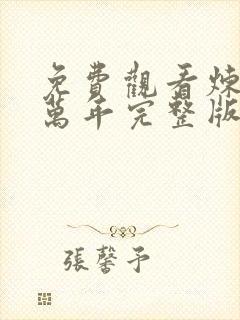 免費觀看煉
萬年完整版
張馨予